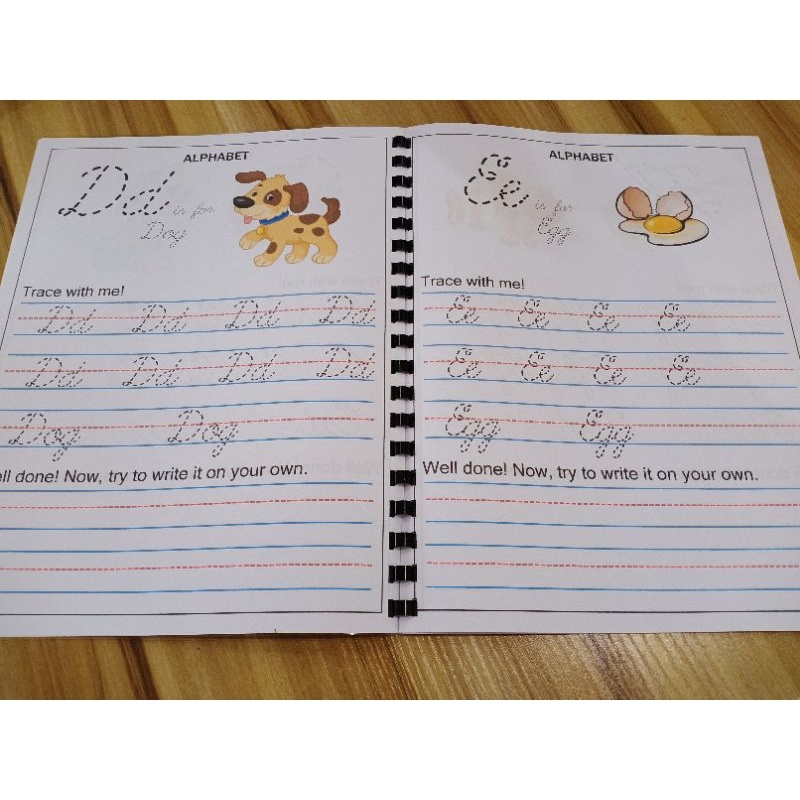 ALPHABET
Dd is for
Dog
Trace with me!
Dd Dd Dd Dd
Dd Dd Dd Dd
Dog Dog
ell done! Now, try to write it on your own.
ALPHABET
Ee is for
Egg
Trace with me!
Ee Ee Ee Ee
Ee Ee Ee Ee
Egg Egg
Well done! Now, try to write it on your own.